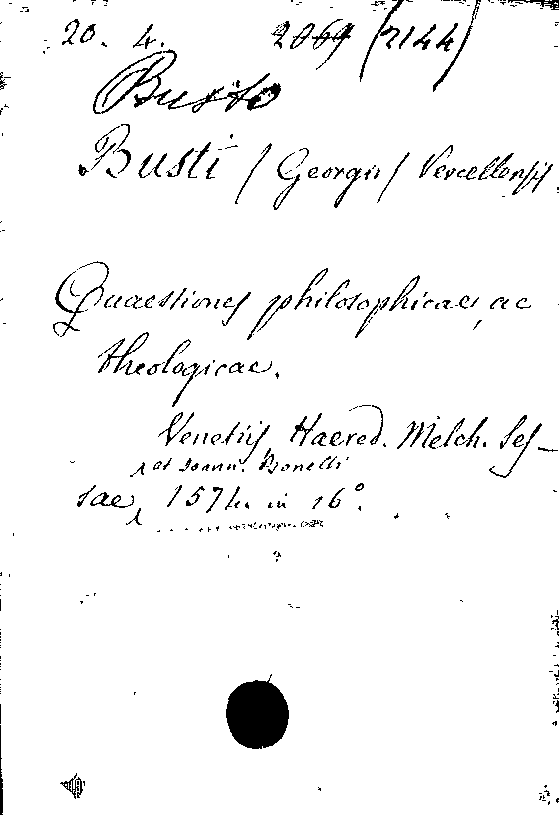 20. 4. 2069 (2144)
Busto
Busti / Georgii / Vercellensis
Quaestiones philosophicae, ac
theologicae.
Venetiis Haered. Melch. Ses-
et Joann. Bonelli
sae, 1574. in 16°.